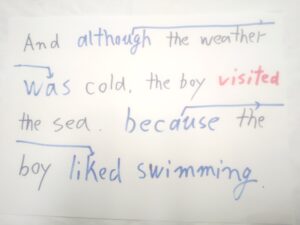 And although the weather
was cold, the boy visited
the sea. because the
boy liked swimming.